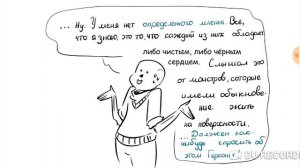 ... Ну. У меня нет определенного мнения. Всё,
что я знаю, это то, что каждый из них обладает
либо чистым, либо чёрным
сердцем. Слышал это
от монстров, которые
имели обыкнове-
ние жить
на поверхности,
... Должен как-
нибудь спросить об
этом Герсона.
RECORD